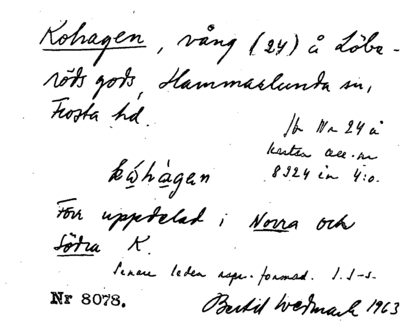 Kohagen, vång (24) å Löbe-
röds gods, Hammarlunda sn,
Frosta hd.
Jfr Nr 24 å
kartan acc.nr
8324 in 4:o.
kóhàgen
Förr uppdelad i Norra och
Södra K.
Senare leden 1. s-s.
Nr 8078.
Bertil Wedmark 1963